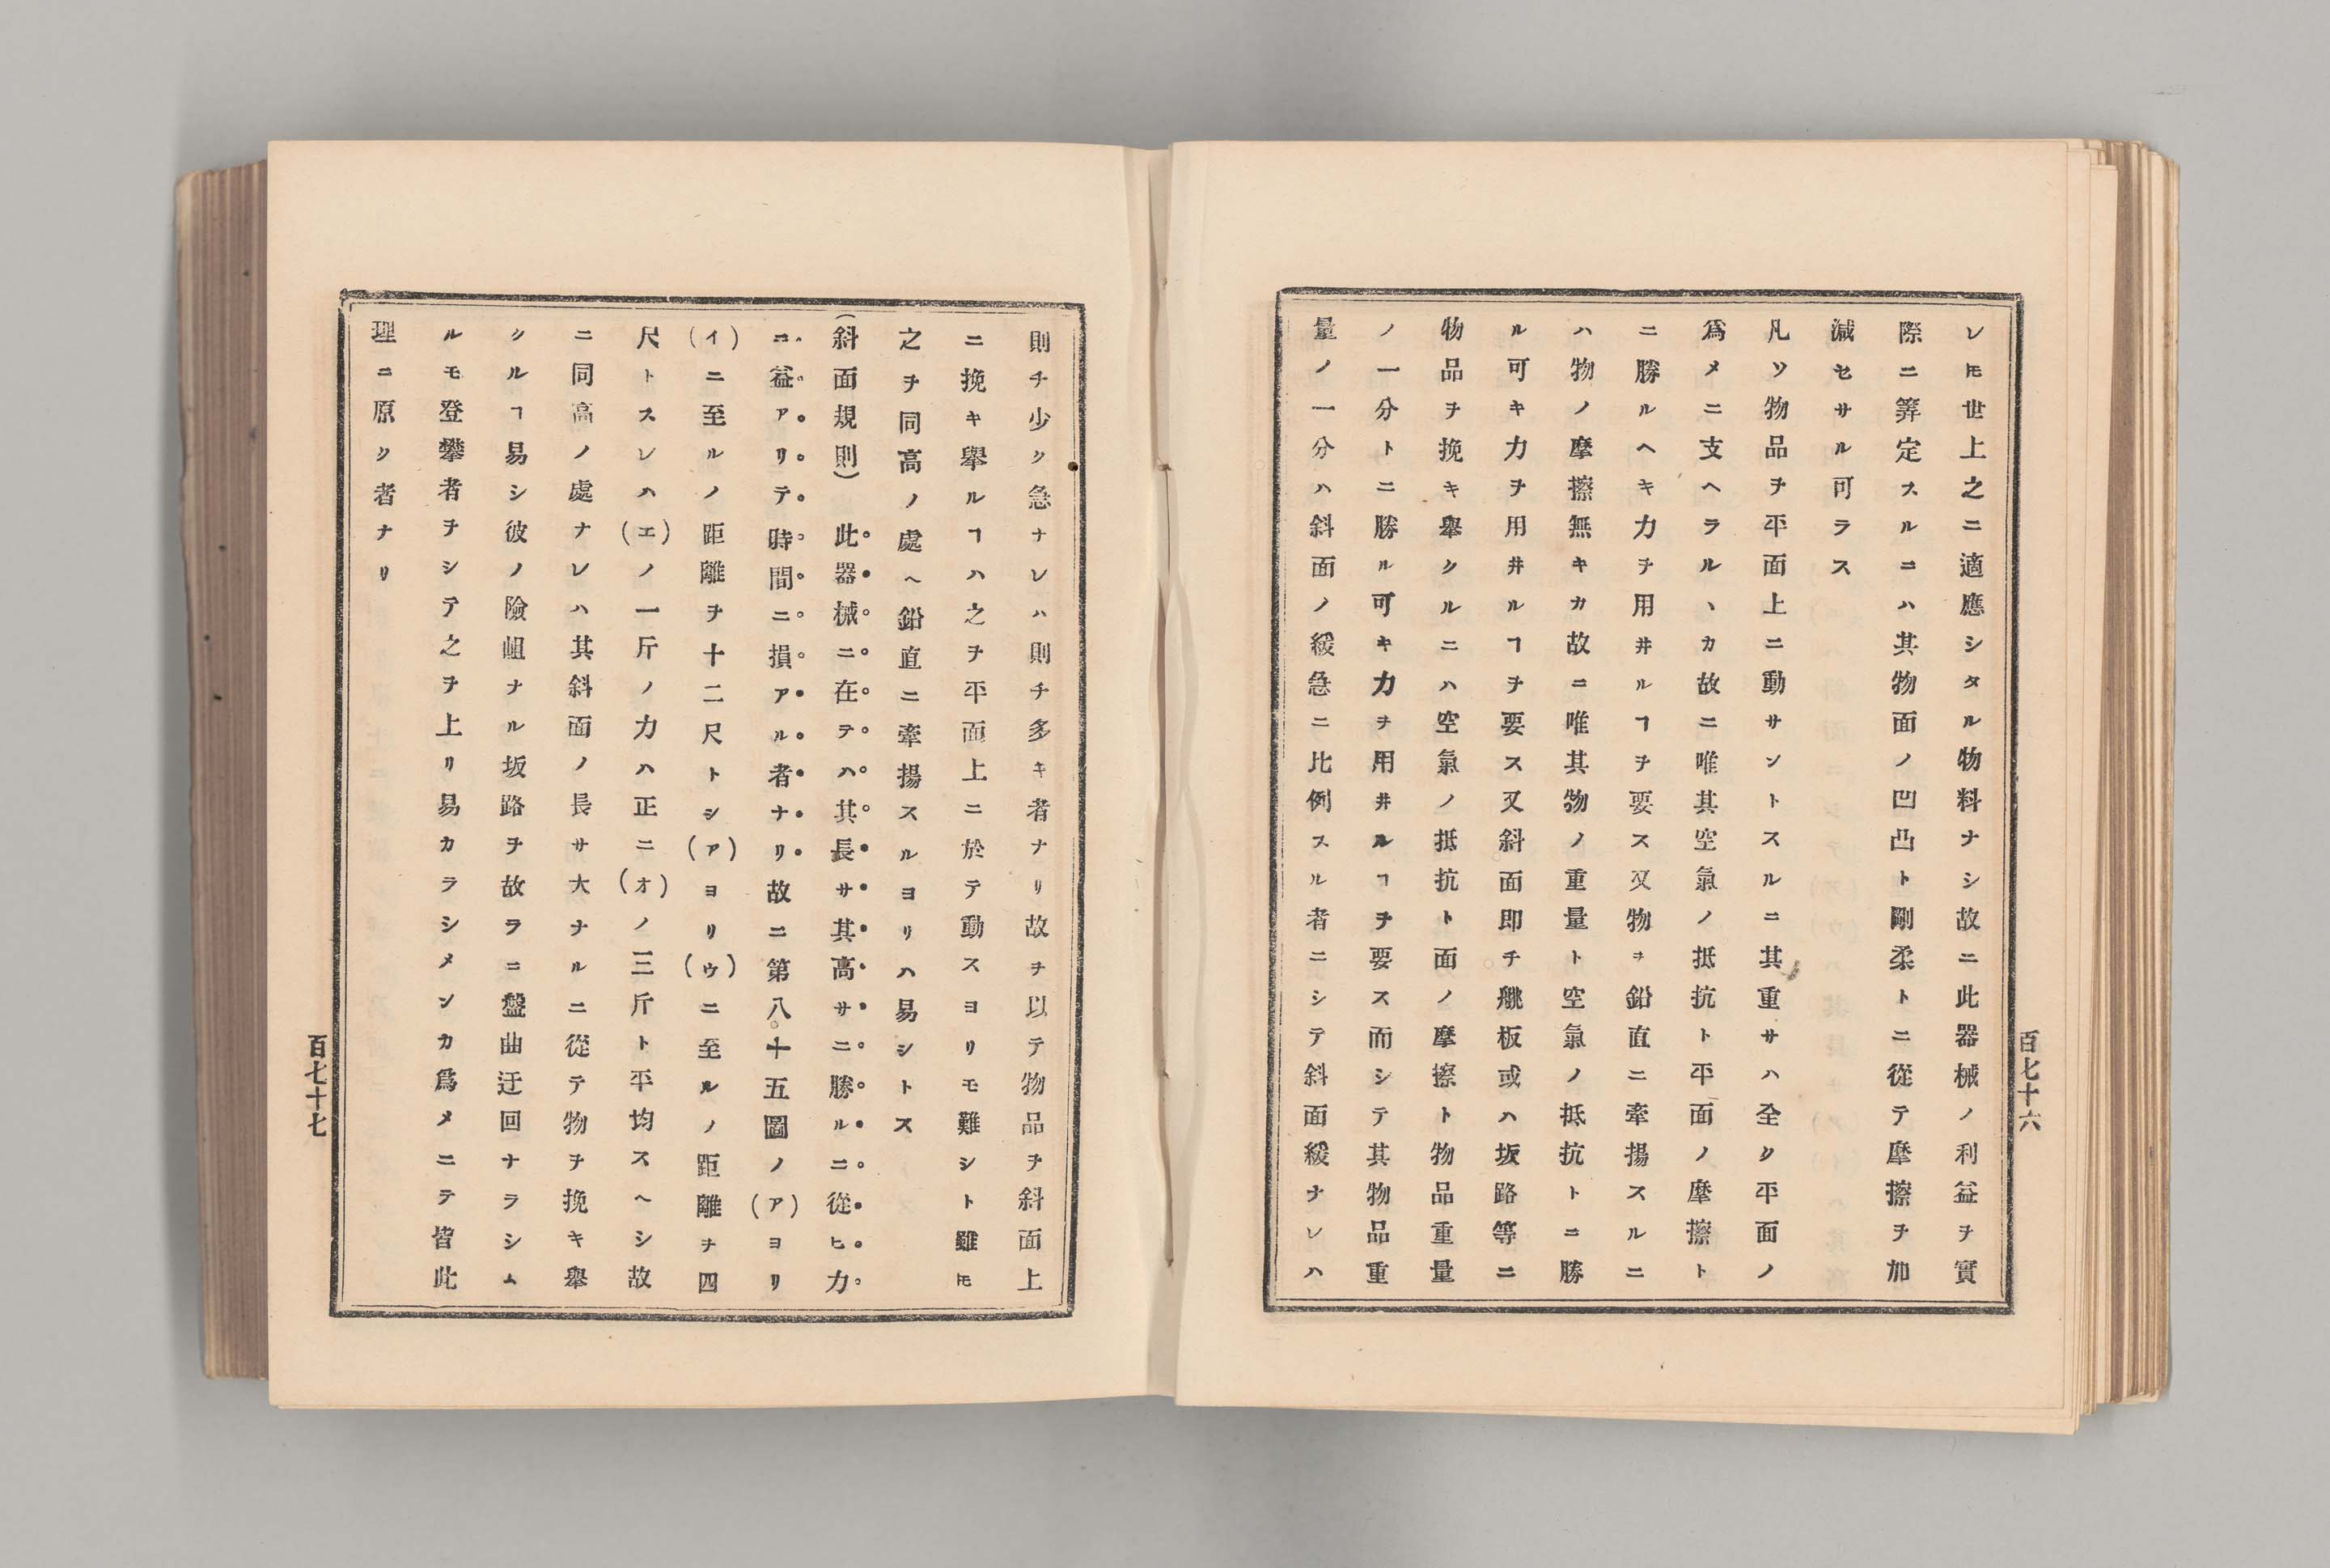 レ𪜈世上之ニ適應シタル物料ナシ故ニ此器械ノ利益ヲ實
際ニ算定スルニハ其物面ノ凹凸ト剛柔トニ從テ摩擦ヲ加
減セサル可ラス
凡ソ物品ヲ平面上ニ動サントスルニ其重サハ全ク平面ノ
爲メニ支ヘラルヽカ故ニ唯其空氣ノ抵抗ト平面ノ摩擦ト
ニ勝ルヘキ力ヲ用井ルヿヲ要ス又物ヲ鉛直ニ牽揚スルニ
ハ物ノ摩擦無キカ故ニ唯其物ノ重量ト空氣ノ抵抗トニ勝
ル可キ力ヲ用井ルヿヲ要ス又斜面即チ板或ハ坂路等ニ
物品ヲ挽キ舉クルニハ空氣ノ抵抗ト面ノ摩擦ト物品重量
ノ一分トニ勝ル可キ力ヲ用井ルヿヲ要ス而シテ其物品重
量ノ一分ハ斜面ノ緩急ニ比例スル者ニシテ斜面緩ナレハ
百七十六
則チ少ク急ナレハ則チ多キ者ナリ故ヲ以テ物品ヲ斜面上
ニ挽キ舉ルヿハ之ヲ平面上ニ於テ動スヨリモ難シト雖𪜈
之ヲ同高ノ處ヘ鉛直ニ牽揚スルヨリハ易シトス
(斜面規則)　此器械ニ在テハ其長サ其高サニ勝ルニ從ヒ力
ニ益アリテ時間ニ損アル者ナリ故ニ第八十五圖ノ(ア)ヨリ
(イ)ニ至ルノ距離ヲ十二尺トシ(ア)ヨリ(ウ)ニ至ルノ距離ヲ四
尺トスレハ(エ)ノ一斤ノ力ハ正ニ(オ)ノ三斤ト平均スヘシ故
ニ同高ノ處ナレハ其斜面ノ長サ大ナルニ從テ物ヲ挽キ舉
クルヿ易シ彼ノ險岨ナル坂路ヲ故ラニ盤曲迂回ナラシム
ルモ登攀者ヲシテ之ヲ上リ易カラシメンカ爲メニテ皆此
理ニ原ク者ナリ
百七十七